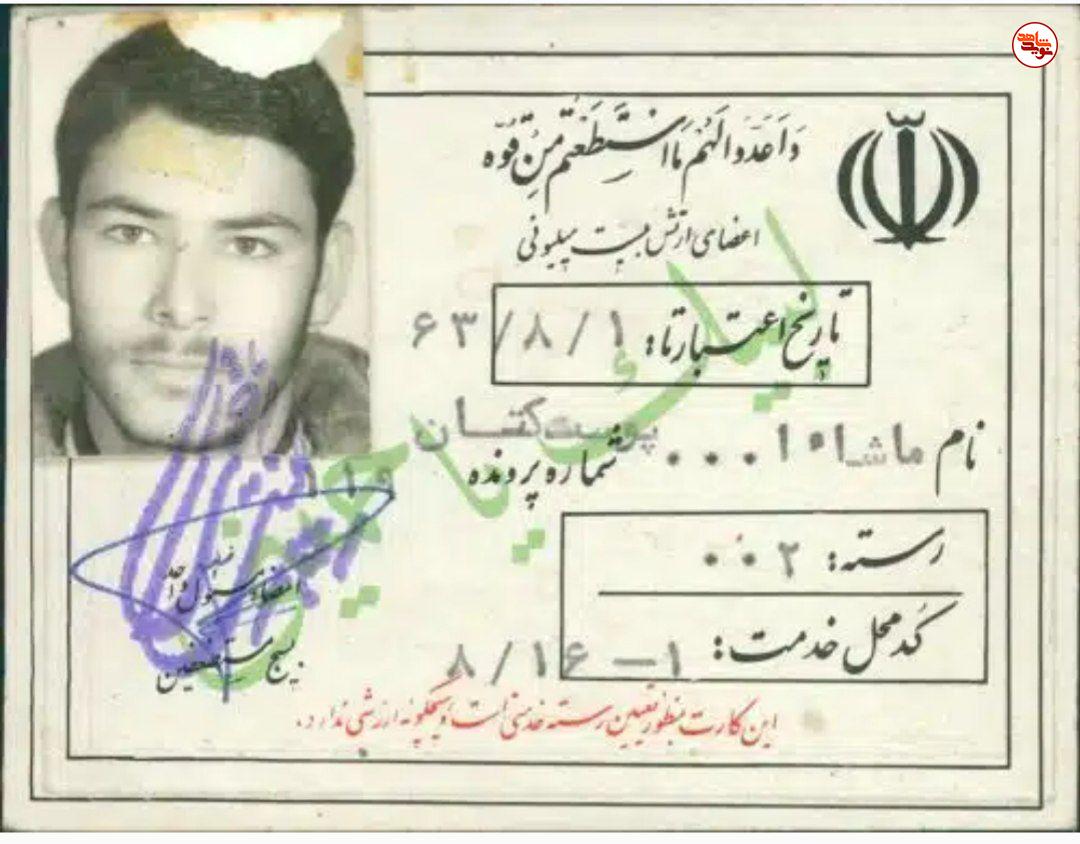 نوید شاهد
وَاَعِدّوالَهُم مَااستَطَعتُم مِن قُوَّه
اعضای ارتش بیست میلیونی
تاریخ اعتبار تا: ۶۳/۸/۱
نام ماشاءا... پوست‌کتان
شماره پرونده
رسته: ۰۰۲
کد محل خدمت: ۸/۱۶-۱
لبیک یا خمینی
امضاء مسئول واحد
بسیج مستضعفین
این کارت بمنظور تعیین رسته خدمتی است و هیچگونه ارزشی ندارد.